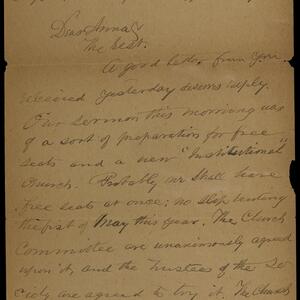 Dear Anna
The best.
A good letter from you
received yesterday deserves reply.
Our sermon this morning was
of a sort of preparation for free
seats and a new "Institutional"
Church. Probably we shall have
free seats at once; no slop renting
the first of May this year. The Church
Committee are unanimously agreed
upon it, and the Trustees of the So
ciety are agreed to try it. The Church